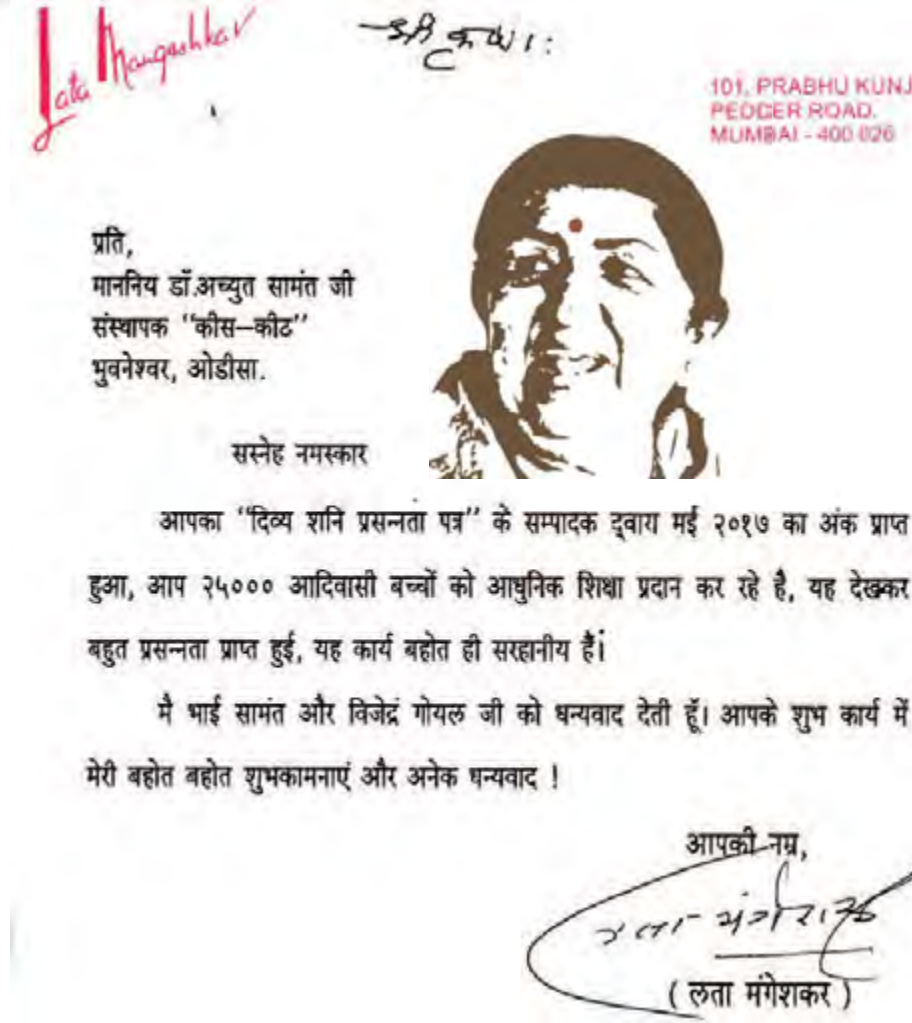 Lata Mangeshkar
श्री कृष्ण:
101, PRABHU KUNJ
PEDDER ROAD.
MUMBAI - 400 026
प्रति,
माननिय डॉ.अच्युत सामंत जी
संस्थापक ‘‘कीस–कीट’’
भुवनेश्वर, ओडीसा.
सस्नेह नमस्कार
आपका ‘‘दिव्य शनि प्रसन्नता पत्र’’ के सम्पादक द्वारा मई २०१७ का अंक प्राप्त
हुआ, आप २५००० आदिवासी बच्चों को आधुनिक शिक्षा प्रदान कर रहे है, यह देखकर
बहुत प्रसन्नता प्राप्त हुई, यह कार्य बहोत ही सरहानीय हैं।
मै भाई सामंत और विजेद्रं गोयल जी को धन्यवाद देती हूँ। आपके शुभ कार्य में
मेरी बहोत बहोत शुभकामनाएं और अनेक धन्यवाद !
आपकी नम्र,
लता मंगेशकर
( लता मंगेशकर )